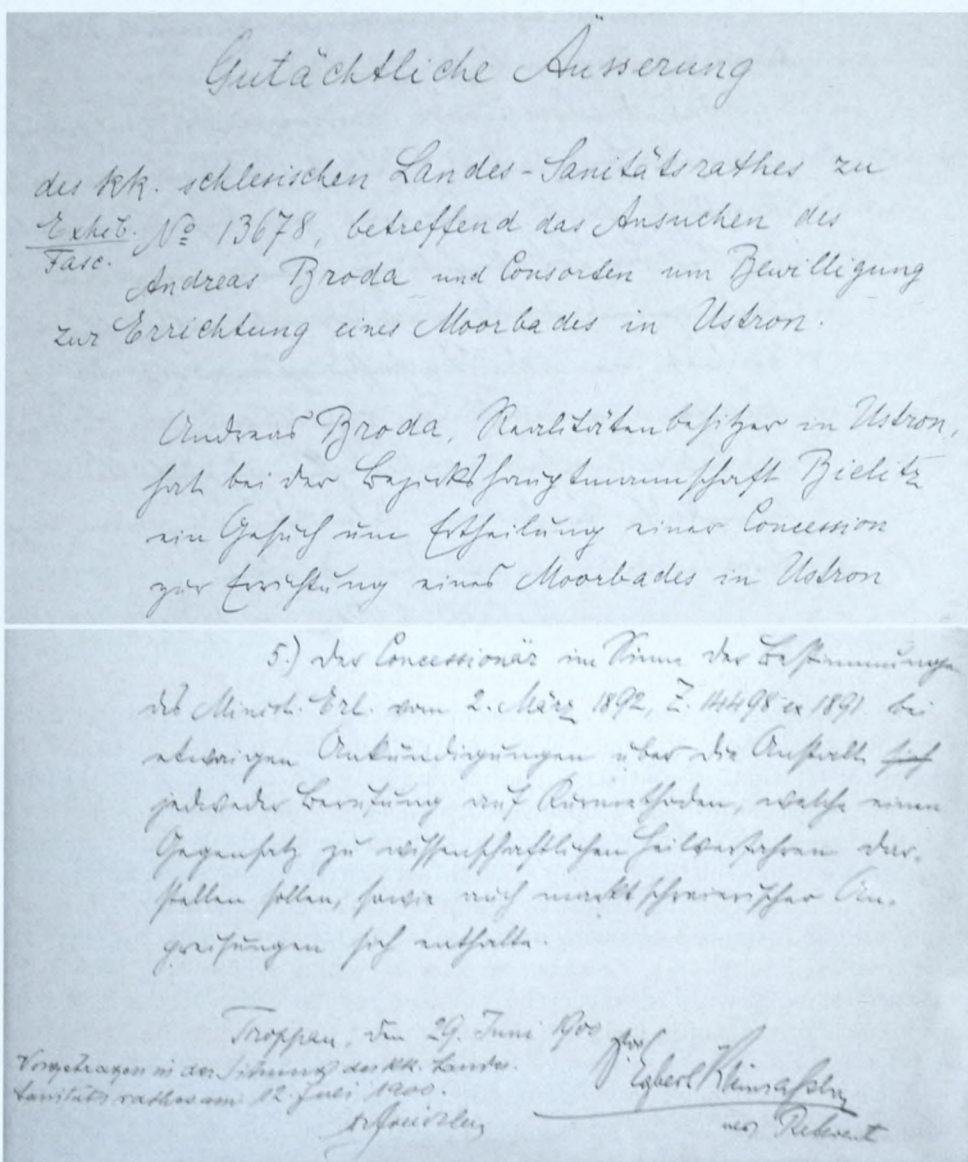 Gutächtliche Äusserung
des kk. schlesischen Landes-Sanitätsrathes zu
Exhib. № 13678, betreffend das Ansuchen des
Fasc.
Andreas Broda und Consorten um Bewilligung
zur Errichtung eines Moorbades in Ustron.
Andreas Broda, Realitätenbesitzer in Ustron,
hat bei der Bezirkshauptmannschaft Bielitz
ein Gesuch um Ertheilung einer Concession
zur Errichtung eines Moorbades in Ustron
5.) der Concessionär im Sinne der Bestimmungen
des Minist. Erl. vom 2. März 1892, Z. 14498 ex 1891 bei
etwaigen Ankündigungen über die Anstalt sich
jedweder Berufung auf Kurmethoden, welche einen
Gegensatz zu wissenschaftlichen Heilverfahren dar-
stellen sollen, sowie auch marktschreierischer An-
preisungen sich enthalte.
Troppau, den 29. Juni 1900
Vorgetragen in der Sitzung des kk. Landes-
Sanitätsrathes am 12. Juli 1900.
Egbert
Referent